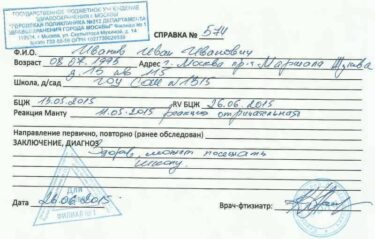 ГОСУДАРСТВЕННОЕ БЮДЖЕТНОЕ УЧРЕЖДЕНИЕ
ЗДРАВООХРАНЕНИЯ Г. МОСКВЫ
"ГОРОДСКАЯ ПОЛИКЛИНИКА №212 ДЕПАРТАМЕНТА
ЗДРАВООХРАНЕНИЯ ГОРОДА МОСКВЫ" Филиал № 1
г. Москва, ул.
СПРАВКА № 574
Ф.И.О. Иванов Иван Иванович
Возраст 08.07.1995 Адрес г. Москва пр-т Маршала
д. 13 кв 115
Школа, д/сад ГОУ СОШ №1315
БЦЖ 15.05.2015 RV БЦЖ 26.06.2015
Реакция Манту 11.05.2015 реакция отрицательная
Направление первично, повторно (ранее обследован)
ЗАКЛЮЧЕНИЕ, ДИАГНОЗ
Здоров, может посещать
школу.
Для
ФИЛИАЛ № 1
Дата 26.06.2015 Врач-фтизиатр: